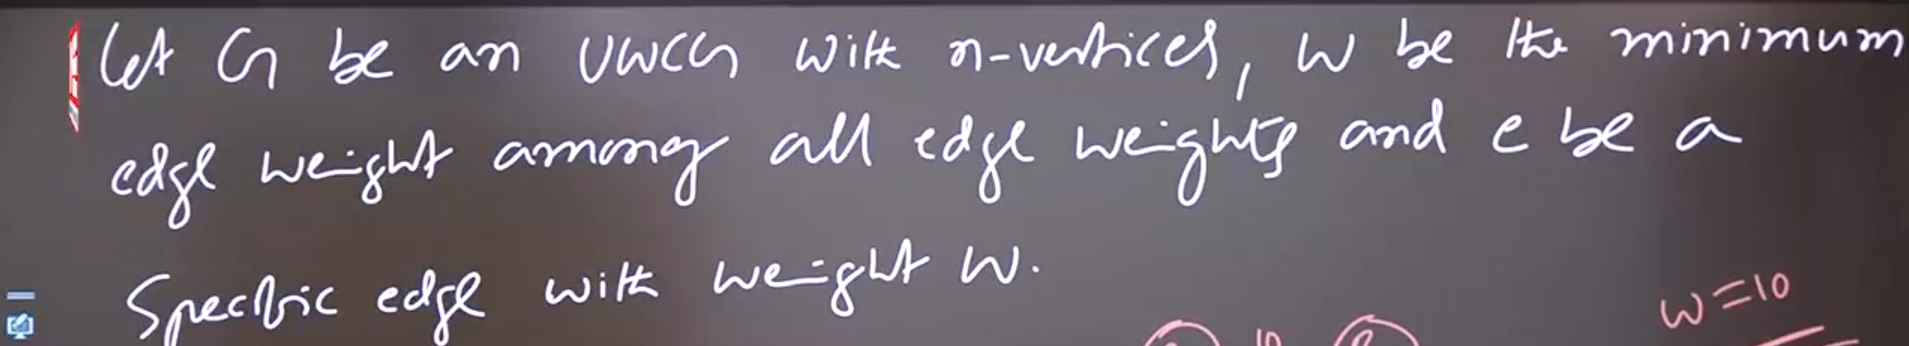 Let G be an UWCG with n-vertices, W be the minimum
edge weight among all edge weights and e be a
Specific edge with weight W.
W=10
10